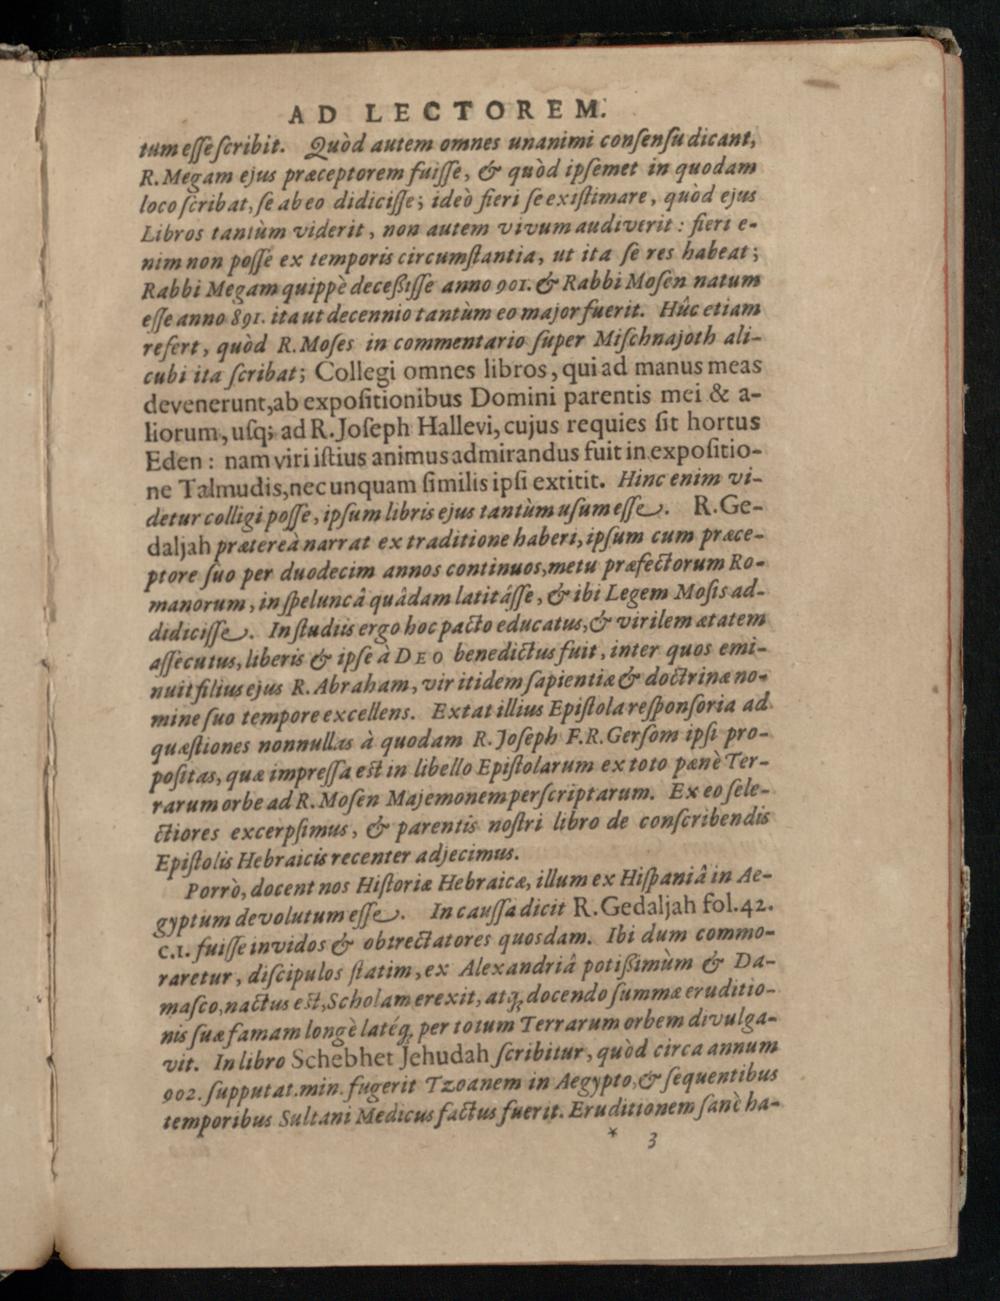 AD LECTOREM.
tum esse scribit. Quòd autem omnes unanimi consensu dicant,
R. Megam ejus præceptorem fuisse, & quòd ipsemet in quodam
loco scribat, se ab eo didicisse; ideò fieri se existimare, quòd ejus
Libros tantùm viderit, non autem vivum audiverit: fieri e-
nim non posse ex temporis circumstantia, ut ita se res habeat;
Rabbi Megam quippè decessisse anno 901. & Rabbi Mosen natum
esse anno 891. ita ut decennio tantùm eo major fuerit. Hûc etiam
refert, quòd R. Moses in commentario super Mischnajoth ali-
cubi ita scribat; Collegi omnes libros, qui ad manus meas
devenerunt, ab expositionibus Domini parentis mei & a-
liorum, usq; ad R. Joseph Hallevi, cujus requies sit hortus
Eden: nam viri istius animus admirandus fuit in expositio-
ne Talmudis, nec unquam similis ipsi extitit. Hinc enim vi-
detur colligi posse, ipsum libris ejus tantùm usum esse. R. Ge-
daljah prætereà narrat ex traditione haberi, ipsum cum præce-
ptore suo per duodecim annos continuos, metu præfectorum Ro-
manorum, in speluncâ quâdam latitásse, & ibi Legem Mosis ad-
didicisse. In studiis ergo hoc pacto educatus, & virilem ætatem
assecutus, liberis & ipse à DEO benedictus fuit, inter quos emi-
nuit filius ejus R. Abraham, vir itidem sapientiæ & doctrinæ no-
mine suo tempore excellens. Extat illius Epistola responsoria ad
quæstiones nonnullas à quodam R. Joseph F. R. Gersom ipsi pro-
positas, quæ impressa est in libello Epistolarum ex toto pænè Ter-
rarum orbe ad R. Mosen Majemonem perscriptarum. Ex eo sele-
ctiores excerpsimus, & parentis nostri libro de conscribendis
Epistolis Hebraicis recenter adjecimus.
Porrò, docent nos Historiæ Hebraicæ, illum ex Hispaniâ in Ae-
gyptum devolutum esse. In caussa dicit R. Gedaljah fol. 42.
c. 1. fuisse invidos & obtrectatores quosdam. Ibi dum commo-
raretur, discipulos statim, ex Alexandriâ potissimùm & Da-
masco, nactus est, Scholam erexit, atq; docendo summæ eruditio-
nis suæ famam longè latéq; per totum Terrarum orbem divulga-
vit. In libro Schebhet Jehudah scribitur, quòd circa annum
902. supputat. min. fugerit Tzoanem in Aegypto, & sequentibus
temporibus Sultani Medicus factus fuerit. Eruditionem sanè ha-
* 3